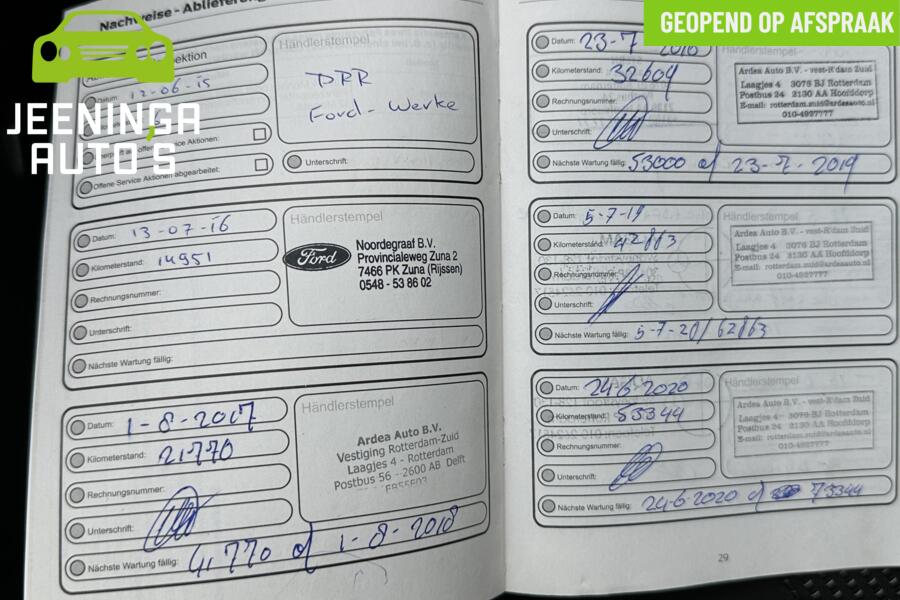 GEOPEND OP AFSPRAAK
JEENINGA
AUTO'S
Nachweise - Ablieferung
Händlerstempel
Datum: 12-06-15
DRR
Ford-Werke
Service Aktionen:
Offene Service Aktionen abgearbeitet:
Unterschrift:
Datum: 13-07-16
Kilometerstand: 14951
Rechnungsnummer:
Unterschrift:
Nächste Wartung fällig:
Händlerstempel
Ford
Noordegraaf B.V.
Provincialeweg Zuna 2
7466 PK Zuna (Rijssen)
0548 - 53 86 02
Datum: 1-8-2017
Kilometerstand: 21770
Rechnungsnummer:
Unterschrift:
Nächste Wartung fällig: 41770 of 1-8-2018
Händlerstempel
Ardea Auto B.V.
Vestiging Rotterdam-Zuid
Laagjes 4 - Rotterdam
Postbus 56 - 2600 AB Delft
Datum: 23-7
Kilometerstand: 32604
Rechnungsnummer:
Unterschrift:
Nächste Wartung fällig: 53000 of 23-7-2019
Händlerstempel
Ardea Auto B.V. - vest-R'dam Zuid
Laagjes 4 3076 BJ Rotterdam
Postbus 24 2130 AA Hoofddorp
E-mail: rotterdam.zuid@ardeaauto.nl
010-4927777
Datum: 5-7-19
Kilometerstand: 42863
Rechnungsnummer:
Unterschrift:
Nächste Wartung fällig: 5-7-20/62863
Händlerstempel
Ardea Auto B.V. - vest-R'dam Zuid
Laagjes 4 3076 BJ Rotterdam
Postbus 24 2130 AA Hoofddorp
E-mail: rotterdam.zuid@ardeaauto.nl
010-4927777
Datum: 24-6-2020
Kilometerstand: 53344
Rechnungsnummer:
Unterschrift:
Nächste Wartung fällig: 24-6-2020 of 73344
Händlerstempel
Ardea Auto B.V. - vest-R'dam Zuid
Laagjes 4 3076 BJ Rotterdam
Postbus 24 2130 AA Hoofddorp
E-mail: rotterdam.zuid@ardeaauto.nl
010-4927777
29